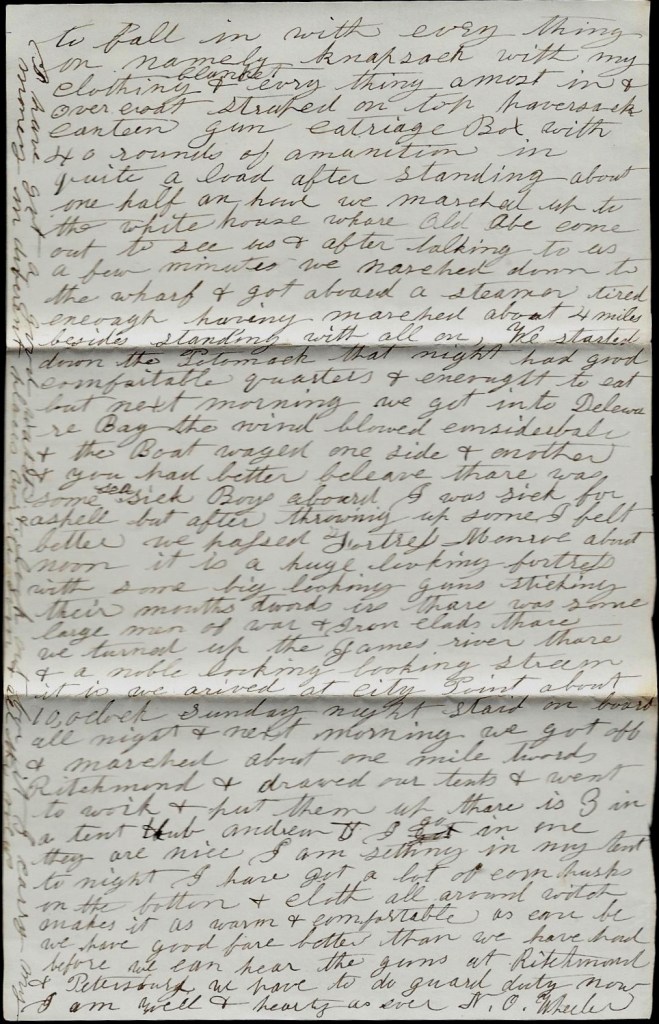 to fall in with every thing
on namely knapsack with my
clothing & blanket every thing amost in &
overcoat straped on top haversack
canteen gun catriage Box with
40 rounds of amunition in
quite a load after standing about
one half an hour we marched up to
the white house whare Old Abe come
out to see us & after talking to us
a few minutes we marched down to
the wharf & got aboard a steamer tired
enough having marched about 4 miles
besides standing with all on, We started
down the Potomack that night had good
comfitable quarters & enought to eat
but next morning we got into Delewa
re Bay the wind blowed considerbale
& the Boat waged one side & another
& you had better beleave thare was
some sea sick Boys aboard I was sick for
aspell but after throwing up some I felt
better we passed Fortres Monroe about
noon it is a huge looking fortres
with some big looking guns sticking
their mouths twords us thare was some
large men of war & Iron clads thare
we turned up the James river thare
& a noble looking looking stream
it is we arived at City Point about
10,oclock sunday night staid on board
all night & next morning we got off
& marched about one mile twords
Ritchmond & drawed our tents & went
to work & put them up thare is 3 in
a tent Hub andrew & I go in one
they are nice I am setting in my tent
to night I have got a lot of corn husks
on the bottom & cloth all around witch
makes it as warm & comfortable as can be
we have good fare better than we have had
before we can hear the guns at Ritchmond
& Petersburg we have to do guard duty now
I am well & hearty as ever N. O. Wheeler
I have got a good
money in diferent places